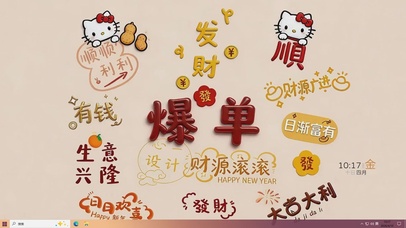 顺顺
利利
发
財
順
财源广进
有钱
發
爆单
日渐富有
生意
兴隆
心
设计
财源滚滚
HAPPY NEW YEAR
發
10:17 金
四月
日日欢喜
發財
大吉大利
da ji da li